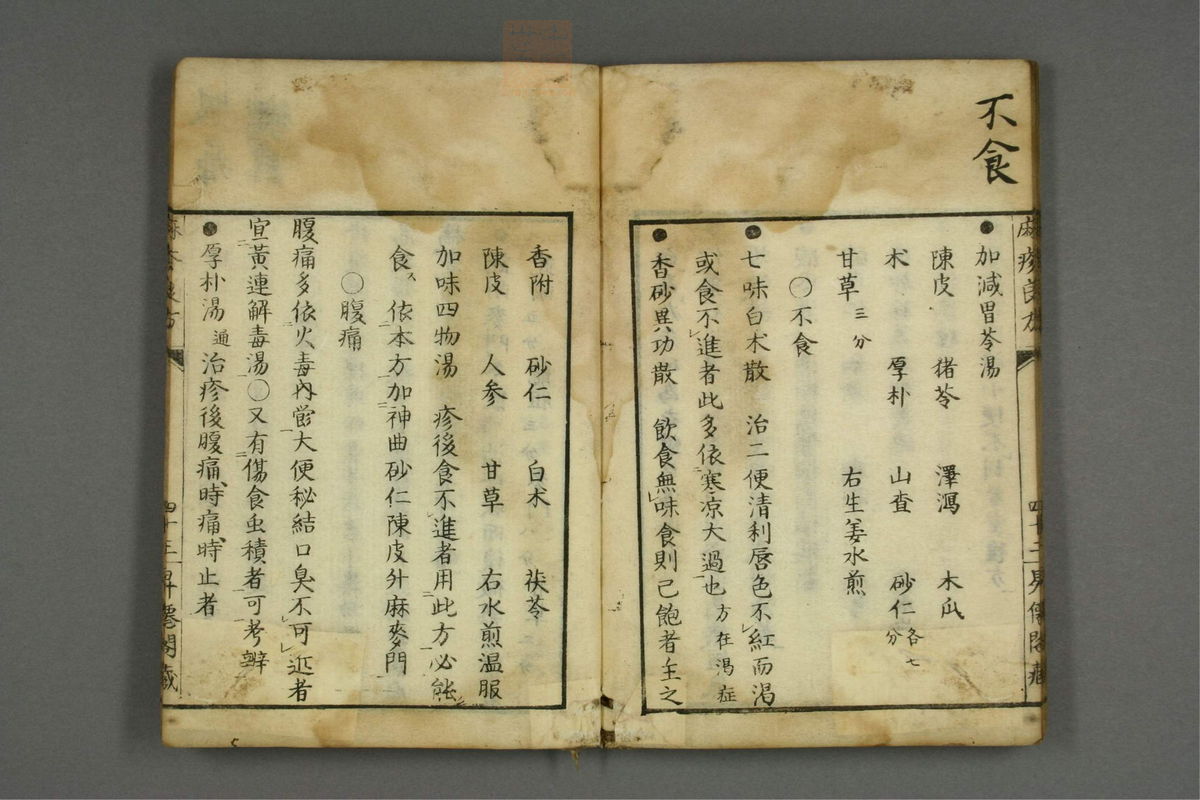 不食
●加減胃苓湯
陳皮 猪苓 澤瀉 木瓜
木 厚朴 山查 砂仁各七分
甘草三分 右生姜水煎
〇不食
●七味白木散 治二便清利唇色不紅而渇
或食不進者此多依寒涼大過也方在渇症
●香砂異功散 飲食無味食則已飽者主之
香附 砂仁 白木 茯苓
陳皮 人参 甘草 右水煎温服
加味四物湯 疹後食不進者用此方必能
食 依本方加神曲砂仁陳皮外麻麥門
〇腹痛
腹痛多依火毒内欝大便秘結口臭不可近者
宜黄連解毒湯〇又有傷食虫積者可考辨
●厚朴湯通治疹後腹痛時痛時止者
麻疹良方
四十三 昇僊閣藏